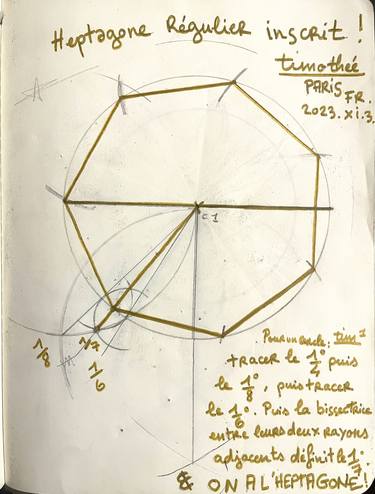 Heptagone Régulier inscrit !
timothée
PARIS
FR.
2023.XI.3.
c1
1/8
1/7
1/6
Pour un cercle :
tracer le 1/4° puis
le 1/8°, puis tracer
le 1/6°. Puis la bissectrice
entre leurs deux rayons
adjacents définit le 1/7°
& ON A L'HEPTAGONE !